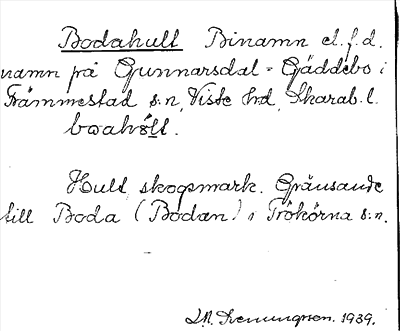 Bodahult Binamn el. f.d.
namn på Gunnarsdal - Gäddebo i
Främmestad s:n, Viste hd, Skarab. l.
boahölt.
Hult, skogsmark. Gränsande
till Boda (Bodan) i Trökörna s:n.
1939.